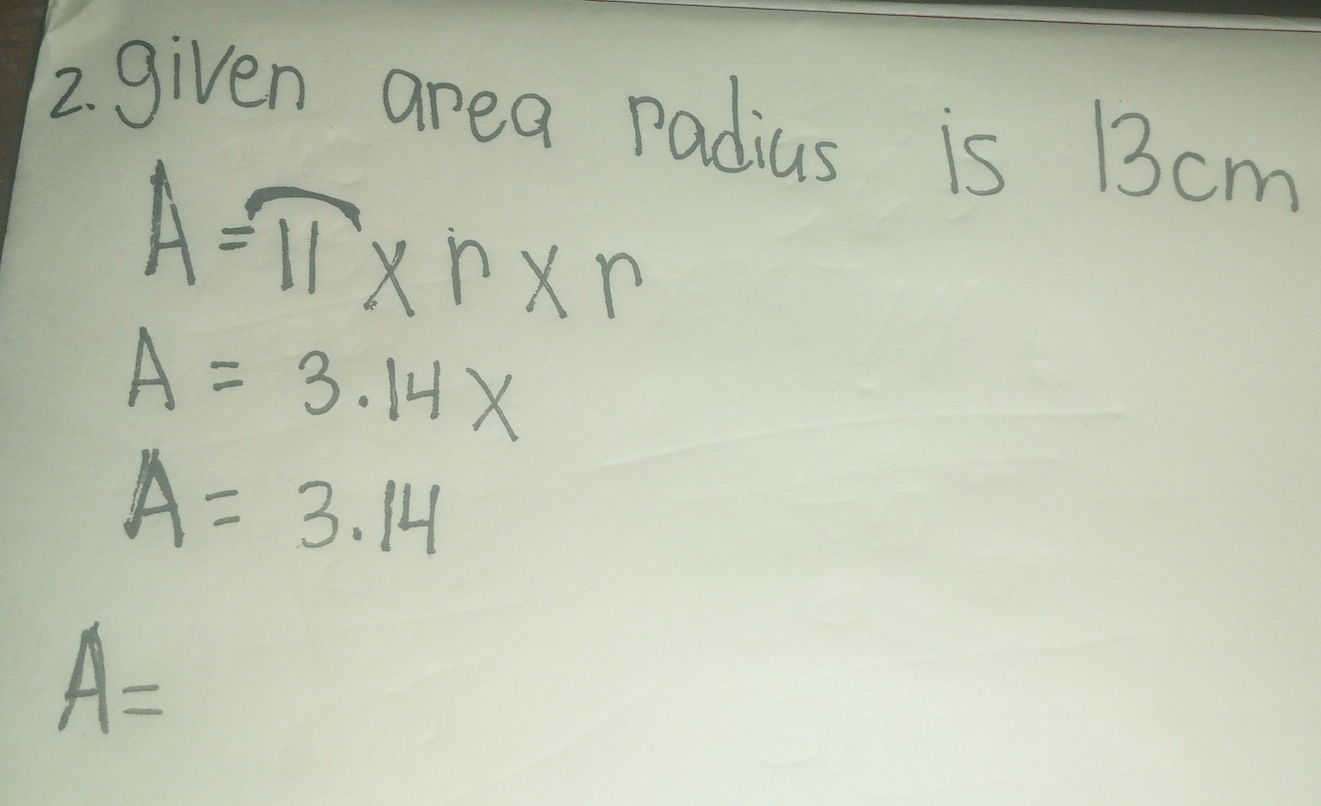 2. given area radius is 13cm
A = π x r x r
A = 3.14 x
A = 3.14
A =